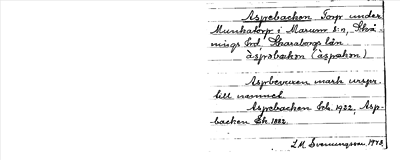 Aspebacken Torp under
Munkatorp i Marum s:n, Skå-
nings hd, Skaraborgs län
àspəbakən (àspakən)
Aspbevuxen mark urspr.
till namnet.
Aspebacken Erh. 1922, Asp-
backen Gk. 1882.
I.M. Svenungsson, 1942